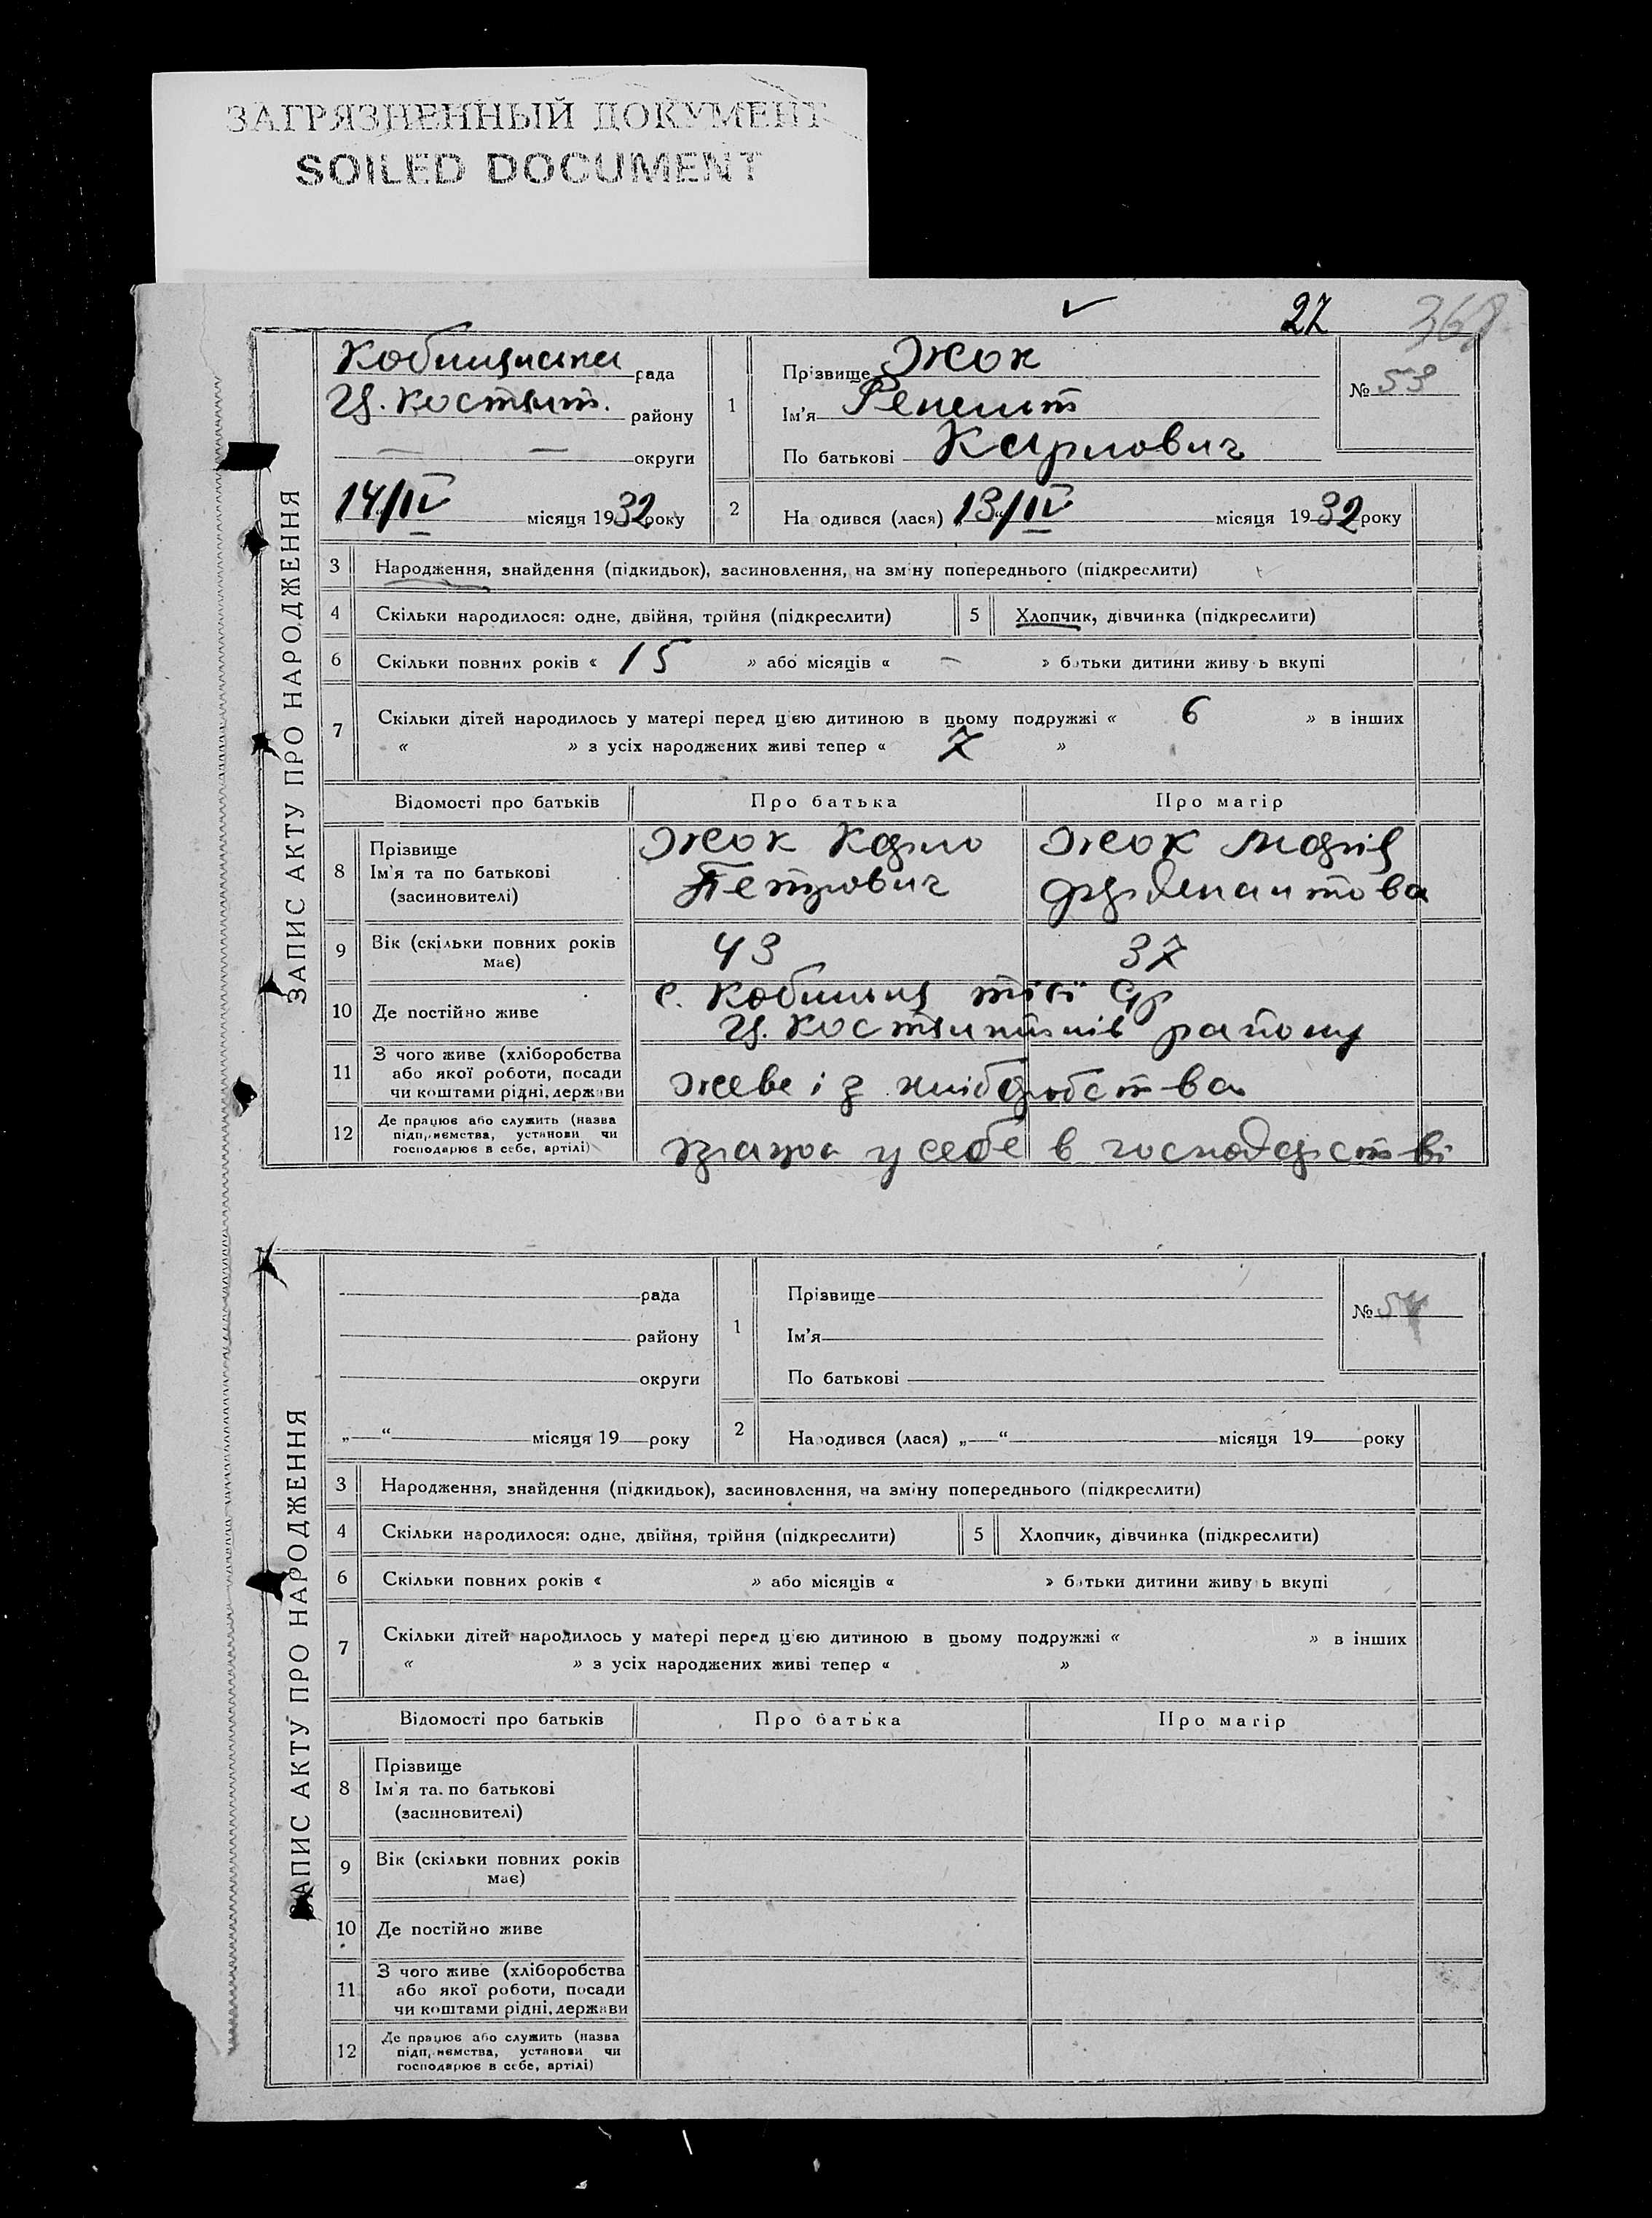 ЗАГРЯЗНЕННЫЙ ДОКУМЕНТ
SOILED DOCUMENT
27 368
ЗАПИС АКТУ ПРО НАРОДЖЕННЯ
рада
району
— — округи
14/IV місяця 1932 року
1
Прізвище Жок
Ім'я
По батькові Карлович
№ 53
2
Народився (лася) 13/IV місяця 1932 року
3 Народження, знайдення (підкидьок), засиновлення, на зміну попереднього (підкреслити)
4 Скільки народилося: одне, двійня, трійня (підкреслити) 5 Хлопчик, дівчинка (підкреслити)
6 Скільки повних років « 15 » або місяців « — » батьки дитини живуть вкупі
7 Скільки дітей народилось у матері перед цією дитиною в цьому подружжі « 6 » в інших
« » з усіх народжених живі тепер « 7 »
Відомості про батьків Про батька Про матір
8 Прізвище
Ім'я та по батькові
(засиновителі)
Жок Карло
Петрович
Жок Марія
9 Вік (скільки повних років
має)
43 37
10 Де постійно живе
с. тієї
району
11 З чого живе (хліборобства
або якої роботи, посади
чи коштами рідні, держави
живе із хліборобства
12 Де працює або служить (назва
підприємства, установи чи
господарює в себе, артілі)
працює у себе в господарстві
ЗАПИС АКТУ ПРО НАРОДЖЕННЯ
рада
району
округи
„—“ місяця 19 року
1
Прізвище
Ім'я
По батькові
№ 54
2
Народився (лася) „—“ місяця 19 року
3 Народження, знайдення (підкидьок), засиновлення, на зміну попереднього (підкреслити)
4 Скільки народилося: одне, двійня, трійня (підкреслити) 5 Хлопчик, дівчинка (підкреслити)
6 Скільки повних років « » або місяців « » батьки дитини живуть вкупі
7 Скільки дітей народилось у матері перед цією дитиною в цьому подружжі « » в інших
« » з усіх народжених живі тепер « »
Відомості про батьків Про батька Про матір
8 Прізвище
Ім'я та по батькові
(засиновителі)
9 Вік (скільки повних років
має)
10 Де постійно живе
11 З чого живе (хліборобства
або якої роботи, посади
чи коштами рідні, держави
12 Де працює або служить (назва
підприємства, установи чи
господарює в себе, артілі)